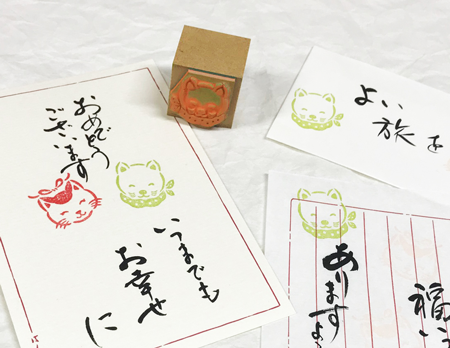 おめでとう
ございます
いつまでも
お幸せ
に
よい
旅
を
福い
ありますよ